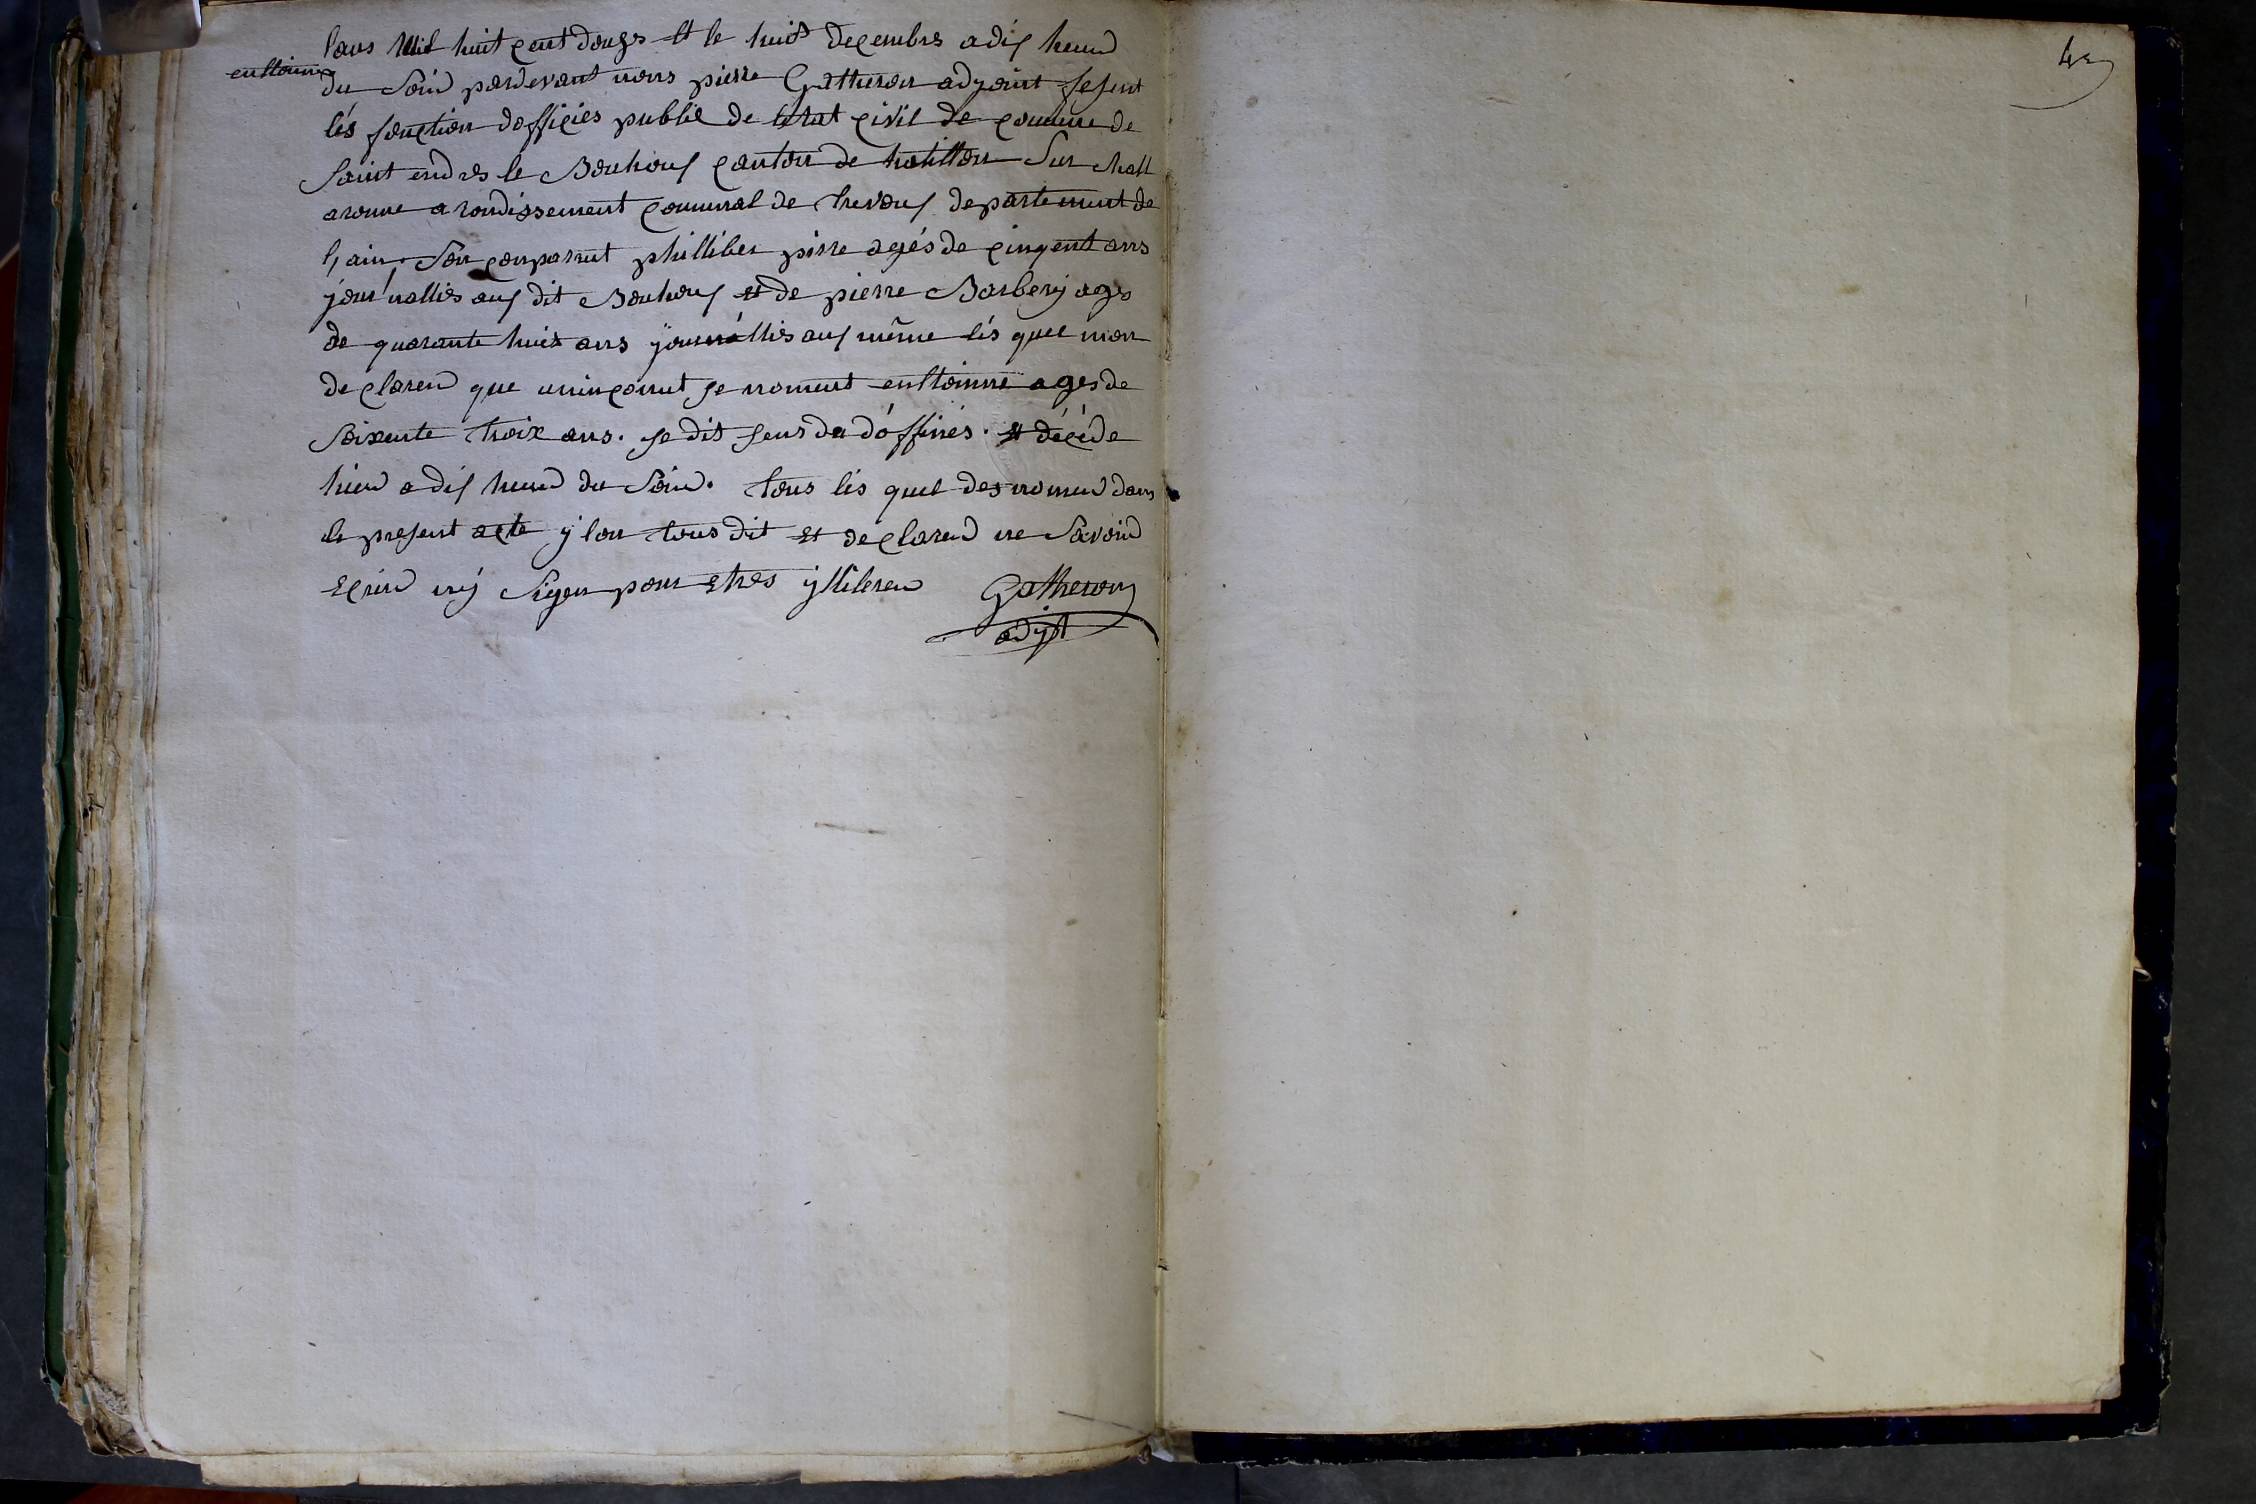 lans mil huit cent douzes et le huits decembres a dix heurd
enttoinne
du soird pardevant nous pierre Gatheron adjoint fesent
lés fonction dofficiés publie de letat civil de comune de
saint endres le Bouhoux canton de hatillon sur chall
aronne arondissement comunal de trevoux departement de
lain. son conparrut philliber pirre agés de cinqent ans
journalliés aux dit Bouhoux et de pierre Barbery ages
de quarante huit ans journalliés aux même lés quel mon
declared que uninconnut se noment enttoinne ages de
soixente troix ans. se dit sens da d'offinés. et décéde
hierd a dix heurd du soird. tous lés quel desnomerd dans
le present acte y lon tous dit et declared ne savoird
ecrird ny signer pour etres yllileren Gatheron
adjt
42